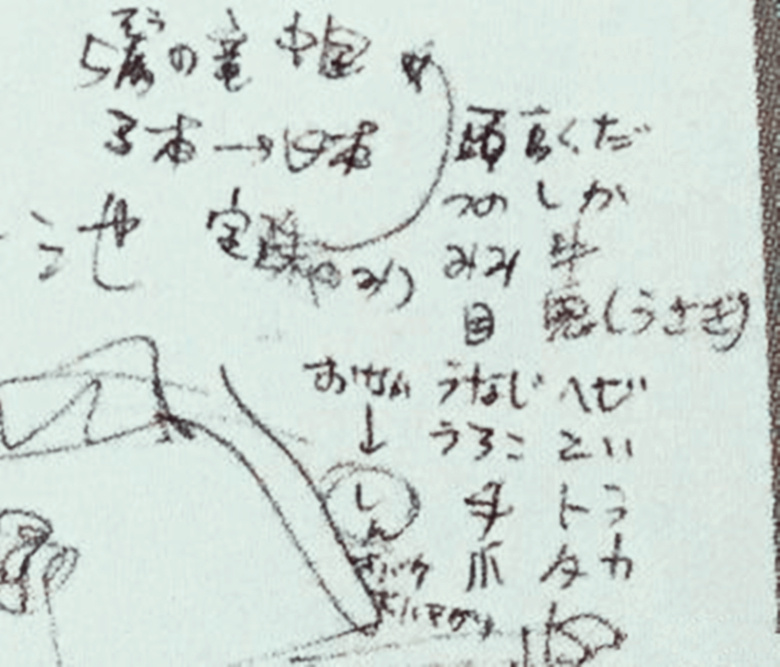 ぞう
5層の竜 中国
3本→4本
池 宝珠のみ
頭 らくだ
つの しか
みみ 牛
目 兎(うさぎ)
おなか
↓
しん
うなじ へび
うろこ こい
手 トラ
爪 タカ